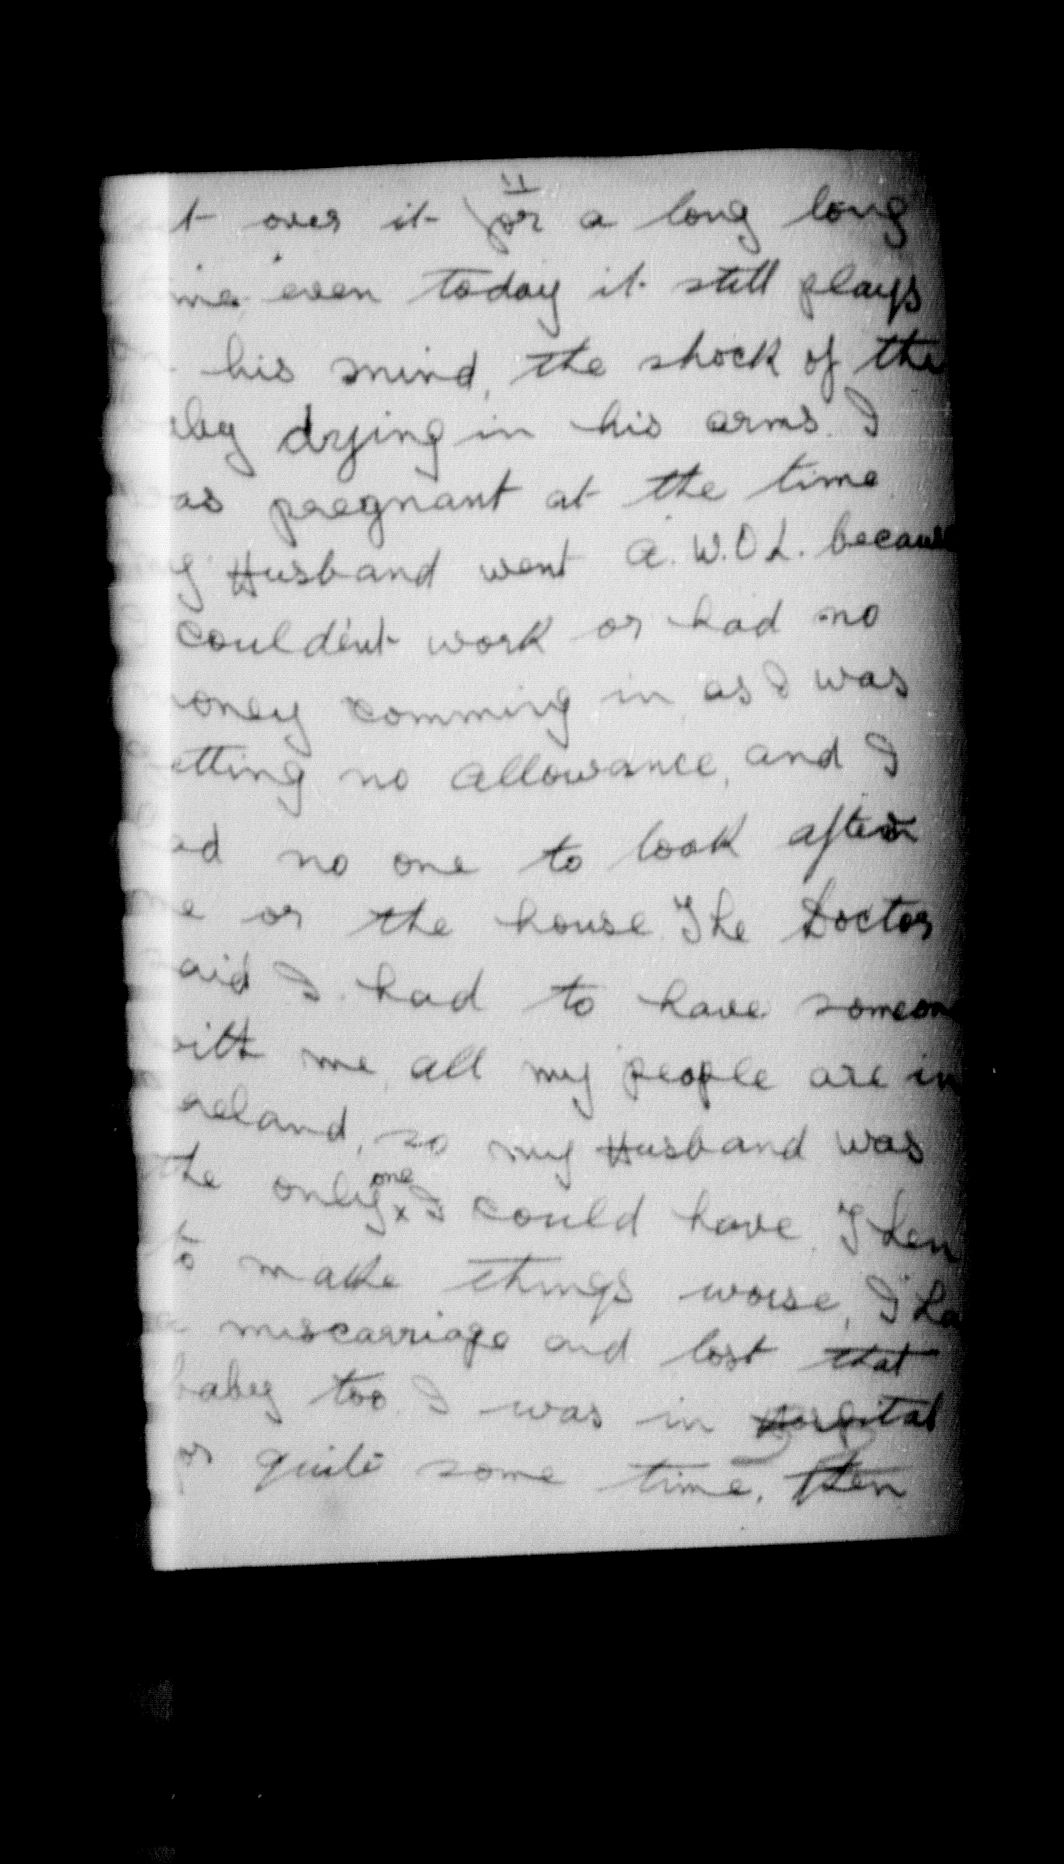 11
t over it for a long long
time, even today it still plays
on his mind, the shock of the
baby drying in his arms. I
was pregnant at the time.
my Husband went A.W.O.L. because
couldent work or had no
money comming in, as I was
getting no allowance, and I
had no one to look after
me or the house. The Doctor
said I had to have someone
with me, all my people are in
Ireland, so my Husband was
the only one x I could have. Then
to make things worse, I ha
a miscarriage and lost that
baby too. I was in Hospital
for quite some time. then